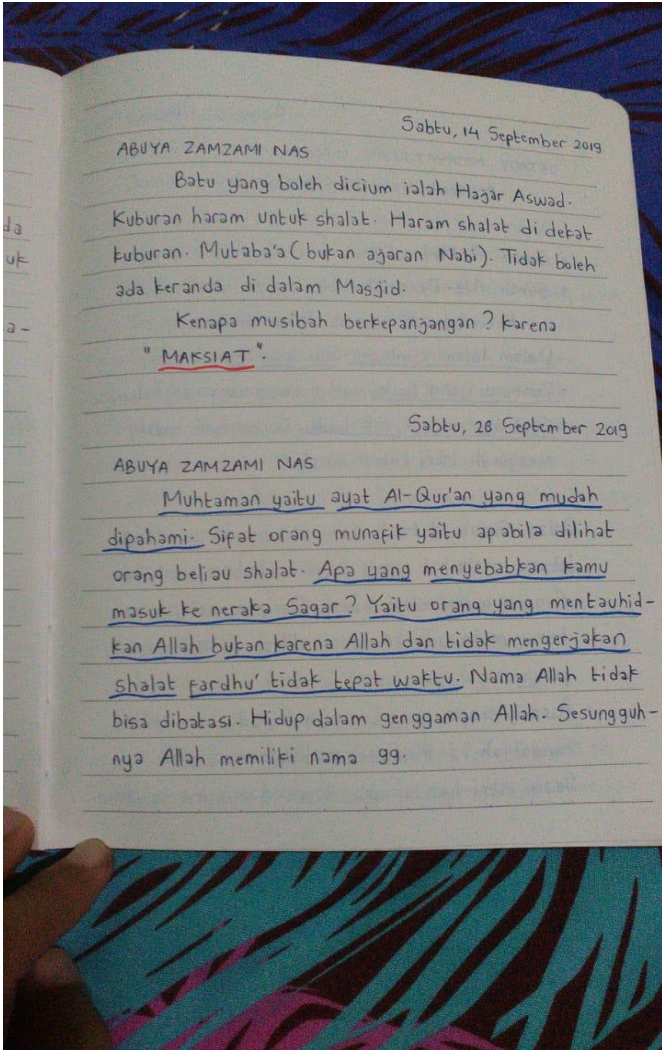 Sabtu, 14 September 2019
ABUYA ZAMZAMI NAS
Batu yang boleh dicium ialah Hajar Aswad.
Kuburan haram untuk shalat. Haram shalat di dekat
kuburan. Mutaba'a (bukan ajaran Nabi). Tidak boleh
ada keranda di dalam Masjid.
Kenapa musibah berkepanjangan? karena
" MAKSIAT ".
Sabtu, 28 September 2019
ABUYA ZAMZAMI NAS
Muhtaman yaitu ayat Al-Qur'an yang mudah
dipahami. Sifat orang munafik yaitu apabila dilihat
orang beliau shalat. Apa yang menyebabkan kamu
masuk ke neraka Saqar? Yaitu orang yang mentauhid-
kan Allah bukan karena Allah dan tidak mengerjakan
shalat fardhu' tidak tepat waktu. Nama Allah tidak
bisa dibatasi. Hidup dalam genggaman Allah. Sesungguh-
nya Allah memiliki nama 99.
da
uk
a-